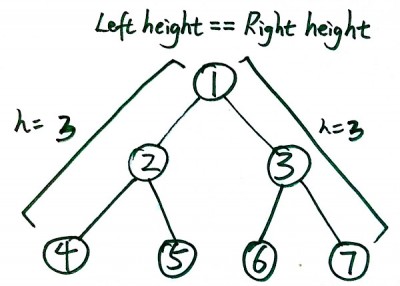 Left height == Right height
1
h= 3
h=3
2
3
4
5
6
7